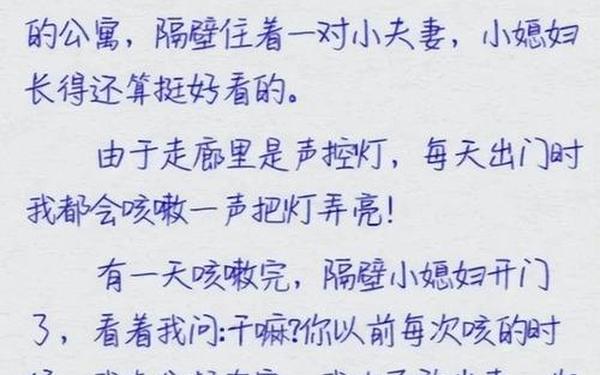 的公寓，隔壁住着一对小夫妻，小媳妇
长得还算挺好看的。
由于走廊里是声控灯，每天出门时
我都会咳嗽一声把灯弄亮！
有一天咳嗽完，隔壁小媳妇开门
了，看着我问:干嘛?你以前每次咳的时